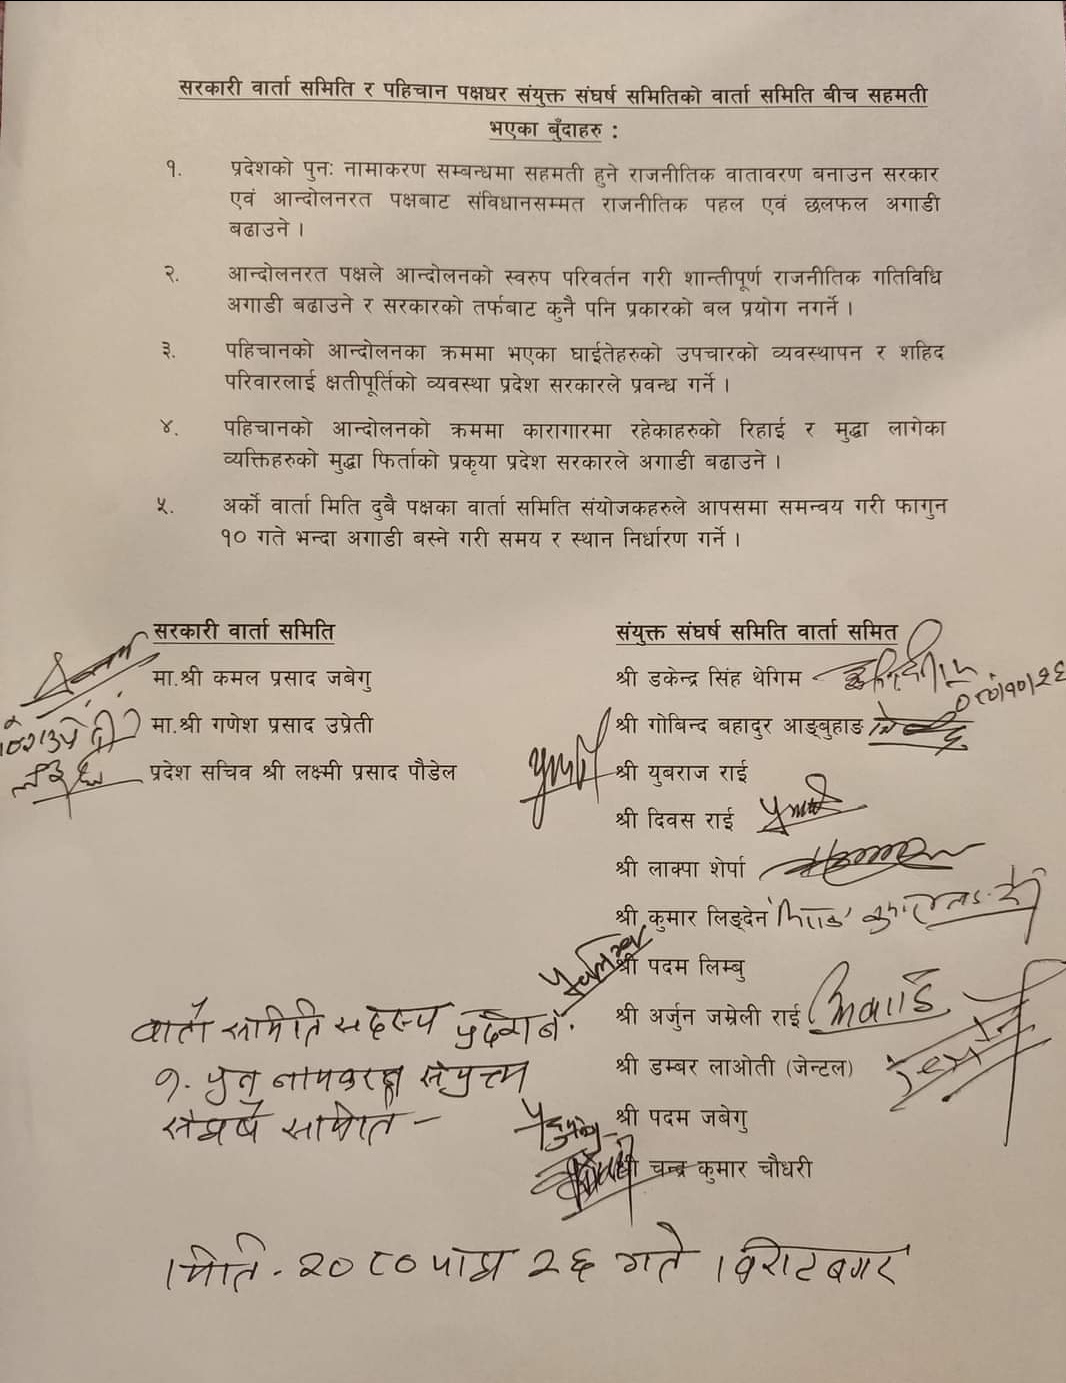 सरकारी वार्ता समिति र पहिचान पक्षधर संयुक्त संघर्ष समितिको वार्ता समिति बीच सहमती
भएका बुँदाहरु :
१. प्रदेशको पुनः नामाकरण सम्बन्धमा सहमती हुने राजनीतिक वातावरण बनाउन सरकार
एवं आन्दोलनरत पक्षबाट संविधानसम्मत राजनीतिक पहल एवं छलफल अगाडी
बढाउने ।
२. आन्दोलनरत पक्षले आन्दोलनको स्वरुप परिवर्तन गरी शान्तीपूर्ण राजनीतिक गतिविधि
अगाडी बढाउने र सरकारको तर्फबाट कुनै पनि प्रकारको बल प्रयोग नगर्ने ।
३. पहिचानको आन्दोलनका क्रममा भएका घाईतेहरुको उपचारको व्यवस्थापन र शहिद
परिवारलाई क्षतीपूर्तिको व्यवस्था प्रदेश सरकारले प्रवन्ध गर्ने ।
४. पहिचानको आन्दोलनको क्रममा कारागारमा रहेकाहरुको रिहाई र मुद्धा लागेका
व्यक्तिहरुको मुद्धा फिर्ताको प्रकृया प्रदेश सरकारले अगाडी बढाउने ।
५. अर्को वार्ता मिति दुबै पक्षका वार्ता समिति संयोजकहरुले आपसमा समन्वय गरी फागुन
१० गते भन्दा अगाडी बस्ने गरी समय र स्थान निर्धारण गर्ने ।
सरकारी वार्ता समिति
मा.श्री कमल प्रसाद जबेगु
मा.श्री गणेश प्रसाद उप्रेती
प्रदेश सचिव श्री लक्ष्मी प्रसाद पौडेल
संयुक्त संघर्ष समिति वार्ता समित
श्री डकेन्द्र सिंह थेगिम
श्री गोबिन्द बहादुर आङ्बुहाङ
श्री युबराज राई
श्री दिवस राई
श्री लाक्पा शेर्पा
श्री कुमार लिङ्देन
श्री पदम लिम्बु
श्री अर्जुन जम्रेली राई
श्री डम्बर लाओती (जेन्टल)
श्री पदम जबेगु
श्री चन्द्र कुमार चौधरी
वार्ता समिति सदस्य
संघर्ष समिति -
मिति - २०८० माघ २६ गते विराटनगर